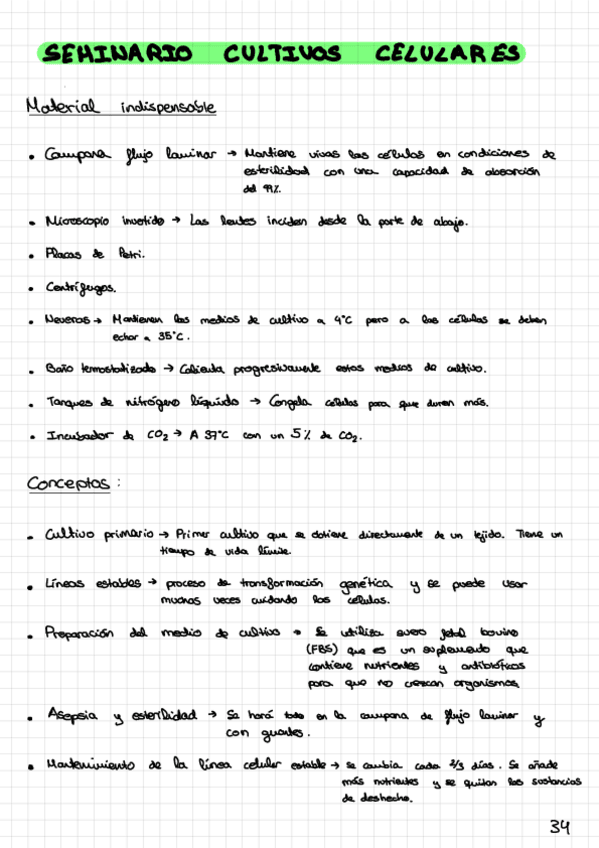 SEMINARIO CULTIVOS CELULARES
Material indispensable
• Campana flujo laminar → Mantiene vivas las células en condiciones de
esterilidad con una capacidad de absorción
del 99%.
• Microscopio invertido → Las lentes inciden desde la parte de abajo.
• Placas de Petri.
• Centrífugas.
• Neveras → Mantienen los medios de cultivo a 4°C pero a las células se deben
echar a 35°C.
• Baño termostatizado → Calienta progresivamente estos medios de cultivo.
• Tanques de nitrógeno líquido → Congela células para que duren más.
• Incubador de CO2 → A 37°C con un 5% de CO2.
Conceptos:
• Cultivo primario → Primer cultivo que se obtiene directamente de un tejido. Tiene un
tiempo de vida límite.
• Líneas estables → proceso de transformación genética y se puede usar
muchas veces cuidando las células.
• Preparación del medio de cultivo → Se utiliza suero fetal bovino
(FBS) que es un suplemento que
contiene nutrientes y antibióticos
para que no crezcan organismos
• Asepsia y esterilidad → Se hará todo en la campana de flujo laminar y
con guantes.
• Mantenimiento de la línea celular estable → se cambia cada 2/3 días. Se añade
más nutrientes y se quitan las sustancias
de deshecho.
34